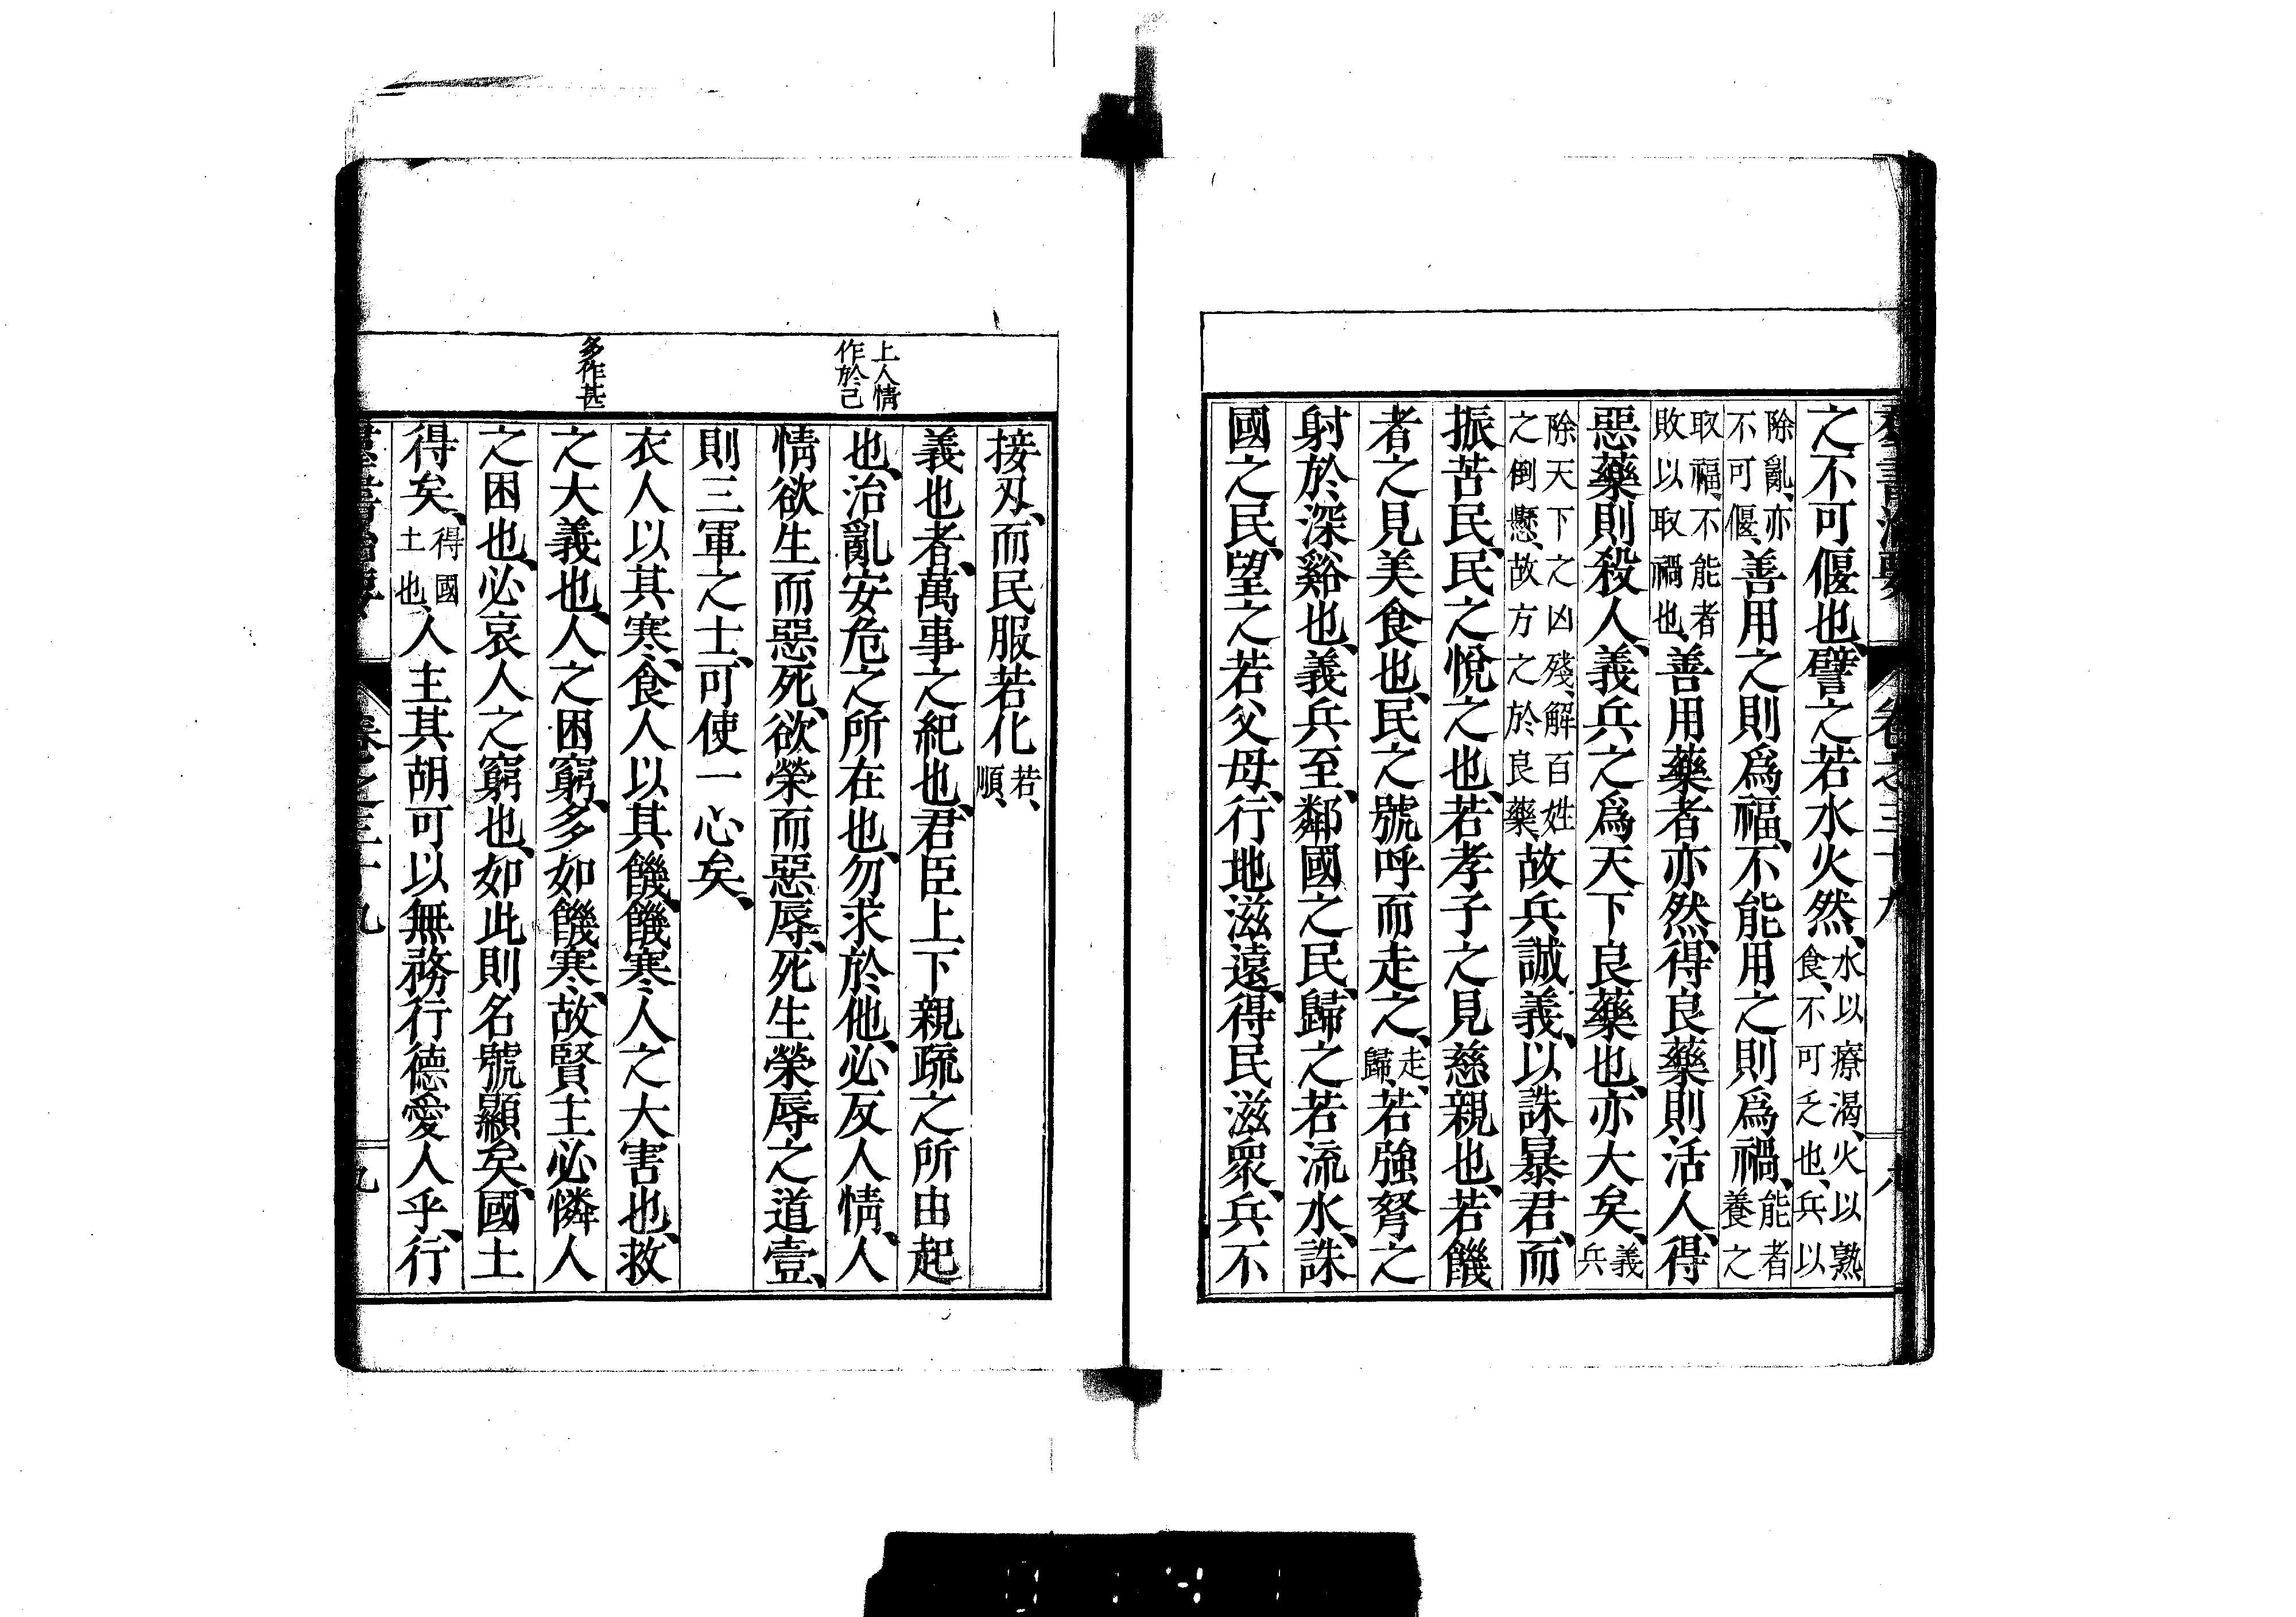 羣書治要 卷之三十九 八
之、不可偃也、譬之若水火然、水以療渴、火以熟食、不可乏也、兵以
除亂、亦不可偃、善用之則爲福、不能用之則爲禍、能者養之
取福、不能者敗以取禍也、善用藥者亦然、得良藥則活人、得
惡藥則殺人、義兵之爲天下良藥也、亦大矣、義兵
除天下之凶殘、解百姓之倒懸、故方之於良藥、故兵誠義、以誅暴君、而
振苦民、民之悅之也、若孝子之見慈親也、若饑
者之見美食也、民之號呼而走之、走、歸、若強弩之
射於深谿也、義兵至、鄰國之民、歸之若流水、誅
國之民、望之若父母、行地滋遠、得民滋衆、兵不
接刃、而民服若化若、順、
義也者、萬事之紀也、君臣上下親疏之所由起
上人情作於己
也、治亂安危之所在也、勿求於他、必反人情、人
情欲生而惡死、欲榮而惡辱、死生榮辱之道壹、
則三軍之士、可使一心矣、
衣人以其寒、食人以其饑、饑寒人之大害也、救
多作甚
之大義也、人之困窮、多如饑寒、故賢主必憐人
之困也、必哀人之窮也、如此則名號顯矣、國士
得矣、得國士也、人主其胡可以無務行德愛人乎、行
羣書治要 卷之三十九 九